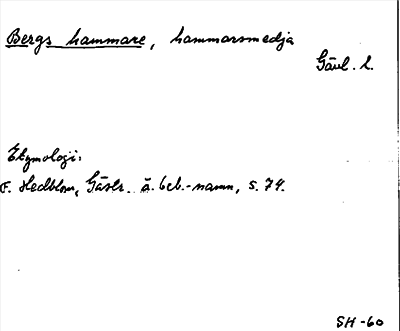 Bergs hammare, hammarsmedja
Gävl. l.
Etymologi:
F. Hedblom, Gästr. ä. beb.-namn, s. 74.
SH-60